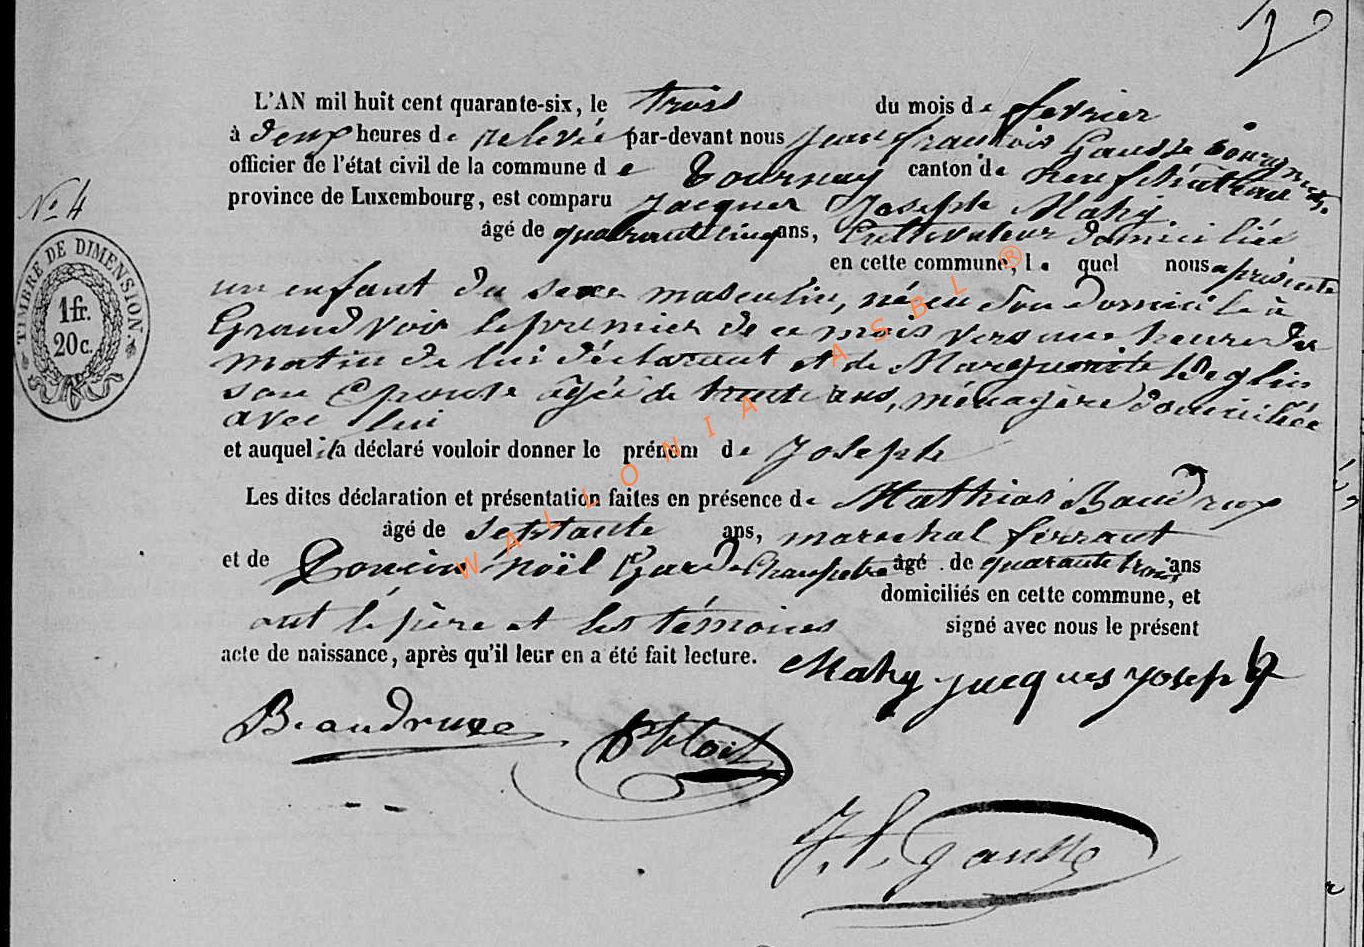 L'AN mil huit cent quarante-six, le trois du mois de fevrier
à deux heures de relevée par-devant nous Jean françois Gausse Bourgmestre
officier de l'état civil de la commune de Tournay canton de Neufchâteau
province de Luxembourg, est comparu Jacques Joseph Mahy
No 4
âgé de quarante cinq ans, Cultivateur domicilié
en cette commune, lequel nous a présenté
un enfant du sexe masculin, né en son domicile à
Grandvoir le premier de ce mois vers une heure du
matin de lui déclarant et de Marguerite
son Epouse agée de trente ans, ménagère domiciliée
avec lui
et auquel il a déclaré vouloir donner le prénom de Joseph
Les dites déclaration et présentation faites en présence de Mathias Baudrux
âgé de septante ans, marechal ferrant
et de Poncin noël Garde Champetre âgé de quarante trois ans
domiciliés en cette commune, et
ont le père et les témoins signé avec nous le présent
acte de naissance, après qu'il leur en a été fait lecture. Mahy jacques joseph
Beaudruxe
J. f. gausse
TIMBRE DE DIMENSION
1 fr.
20 c.
WALLONIA ASBL ®